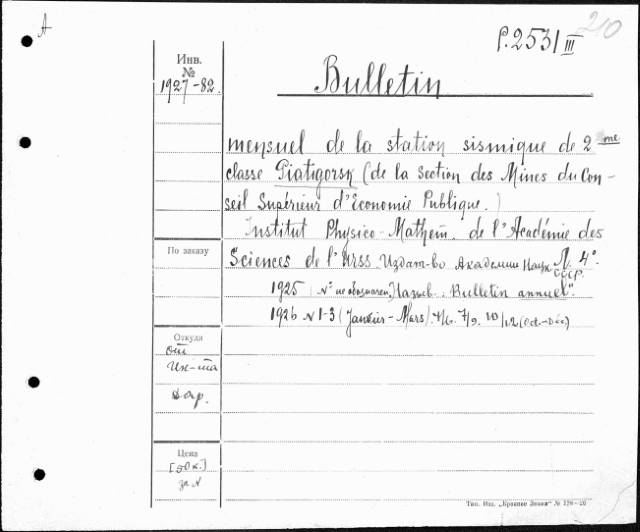 A
P.253/III
210
Инв.
№
1927-82.
Bulletin
mensuel de la station sismique de 2 me
classe Piatigorsk (de la section des Mines du Con-
seil Supérieur d'Économie Publique.)
Institut Physico-Mathém. de l'Académie des
По заказу
Sciences de l'Urss. Издат-во Академии Наук СССР. Л. 4°.
1925 (№ не обозначен) Назыв.: "Bulletin annuel".
1926 N 1-3 (Janvier-Mars). 4/6. 7/9. 10/12 (Oct.-Déc)
Откуда
от
Ин-та
дар.
Цена
[50 к.]
за N
Тип. Изд. „Красное Знамя" № 129—26